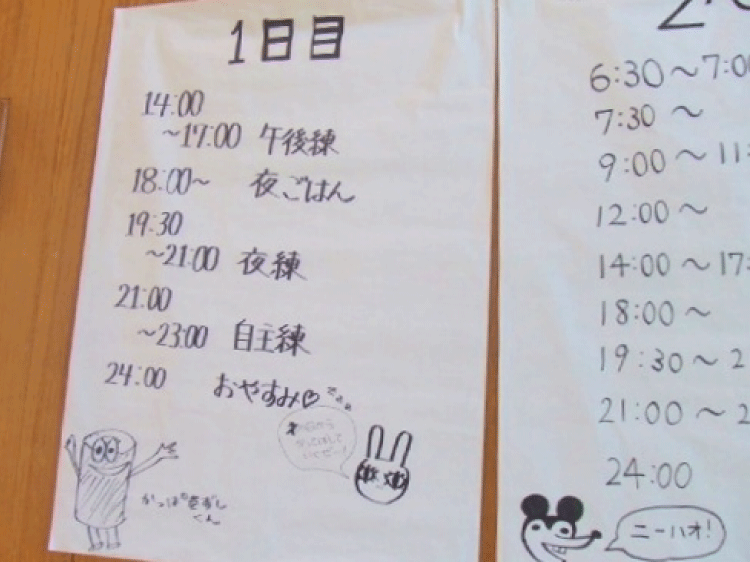 1日目
14:00
～17:00 午後練
18:00～ 夜ごはん
19:30
～21:00 夜練
21:00
～23:00 自主練
24:00 おやすみ♡
zzz
かっぱ巻ずし
くん
6:30～7:00
7:30～
9:00～11:
12:00～
14:00～17:
18:00～
19:30～2
21:00～2
24:00
ニーハオ!